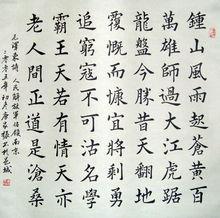 鍾山風雨起蒼黃百
萬雄師過大江虎踞
龍盤今勝昔天翻地
覆慨而慷宜將剩勇
追窮寇不可沽名學
霸王天若有情天亦
老人間正道是滄桑
毛澤東詩 人民解放軍佔領南京
二零零五年